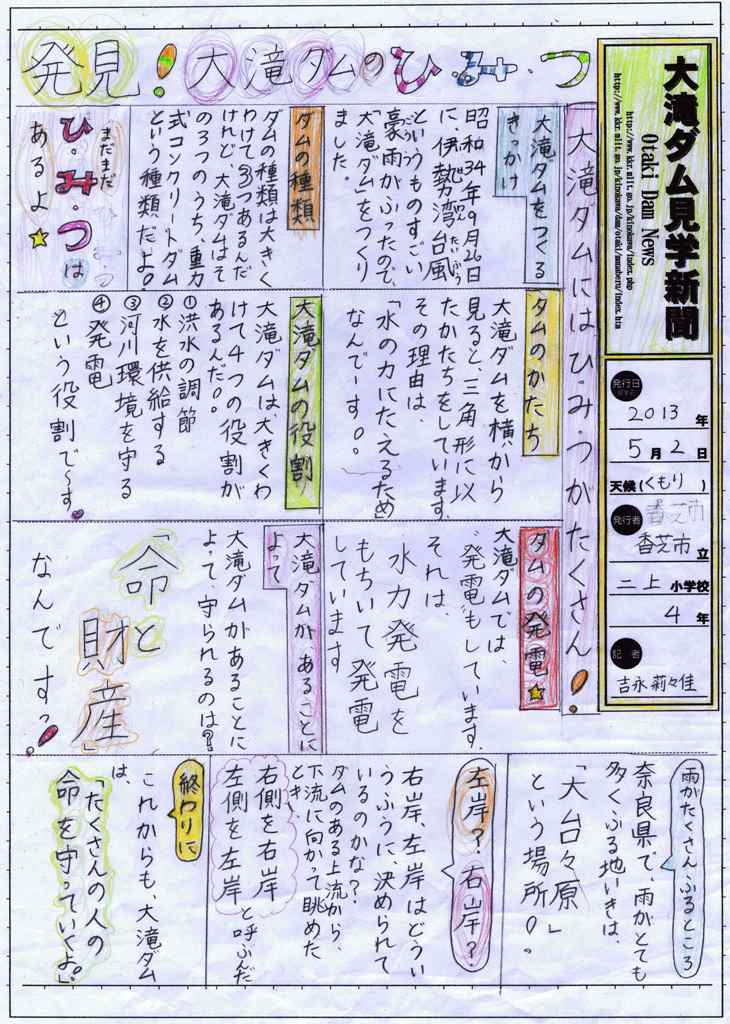 発見！大滝ダムのひ・み・つ
大滝ダム見学新聞
Otaki Dam News
http://www.kkr.mlit.go.jp/kinokawa/index.php
発行日
2013年
5月2日
天候(くもり)
発行者
香芝市
香芝市立
二上小学校
4年
記者
吉永莉々佳
大滝ダムにはひ・み・つがたくさん！
大滝ダムをつくる
きっかけ
昭和34年9月26日
に、伊勢湾台風
というものすごい
豪雨がふったので、
「大滝ダムをつくり
ました。
ダムの種類
ダムの種類は大きく
わけて3つあるんだ
けれど、大滝ダムはそ
の3つのうち、重力
式コンクリートダム
という種類だよ。
まだまだ
ひ・み・つは
あるよ
ダムのかたち
大滝ダムを横から
見ると、三角形に以
たかたちをしています。
その理由は、
「水の力にたえるため」
なんで～す。
大滝ダムの役割
大滝ダムは、大きくわ
けて4つの役割が
あるんだ。
①洪水の調節
②水を供給する
③河川環境を守る
④発電
という役割で～す。
ダムの発電
大滝ダムでは、
"発電"もしています。
それは、
水力発電を
もちいて発電
しています
大滝ダムが、あることに
よって
大滝ダムがあることに
よって、守られるのは？
「命と
財産」
なんですっ!
雨がたくさんふるところ
奈良県で、雨がとても
多くふる地いきは、
「大台々原」
という場所。
左岸？右岸？
右岸、左岸はどうい
うふうに、決められて
いるのかな？
ダムのある上流から、
下流に向かって眺めた
とき、
右側を右岸
左側を左岸
と呼ぶんだ
終わりに
これからも、大滝ダム
は、
「たくさんの人の
命を守っていくよ。」